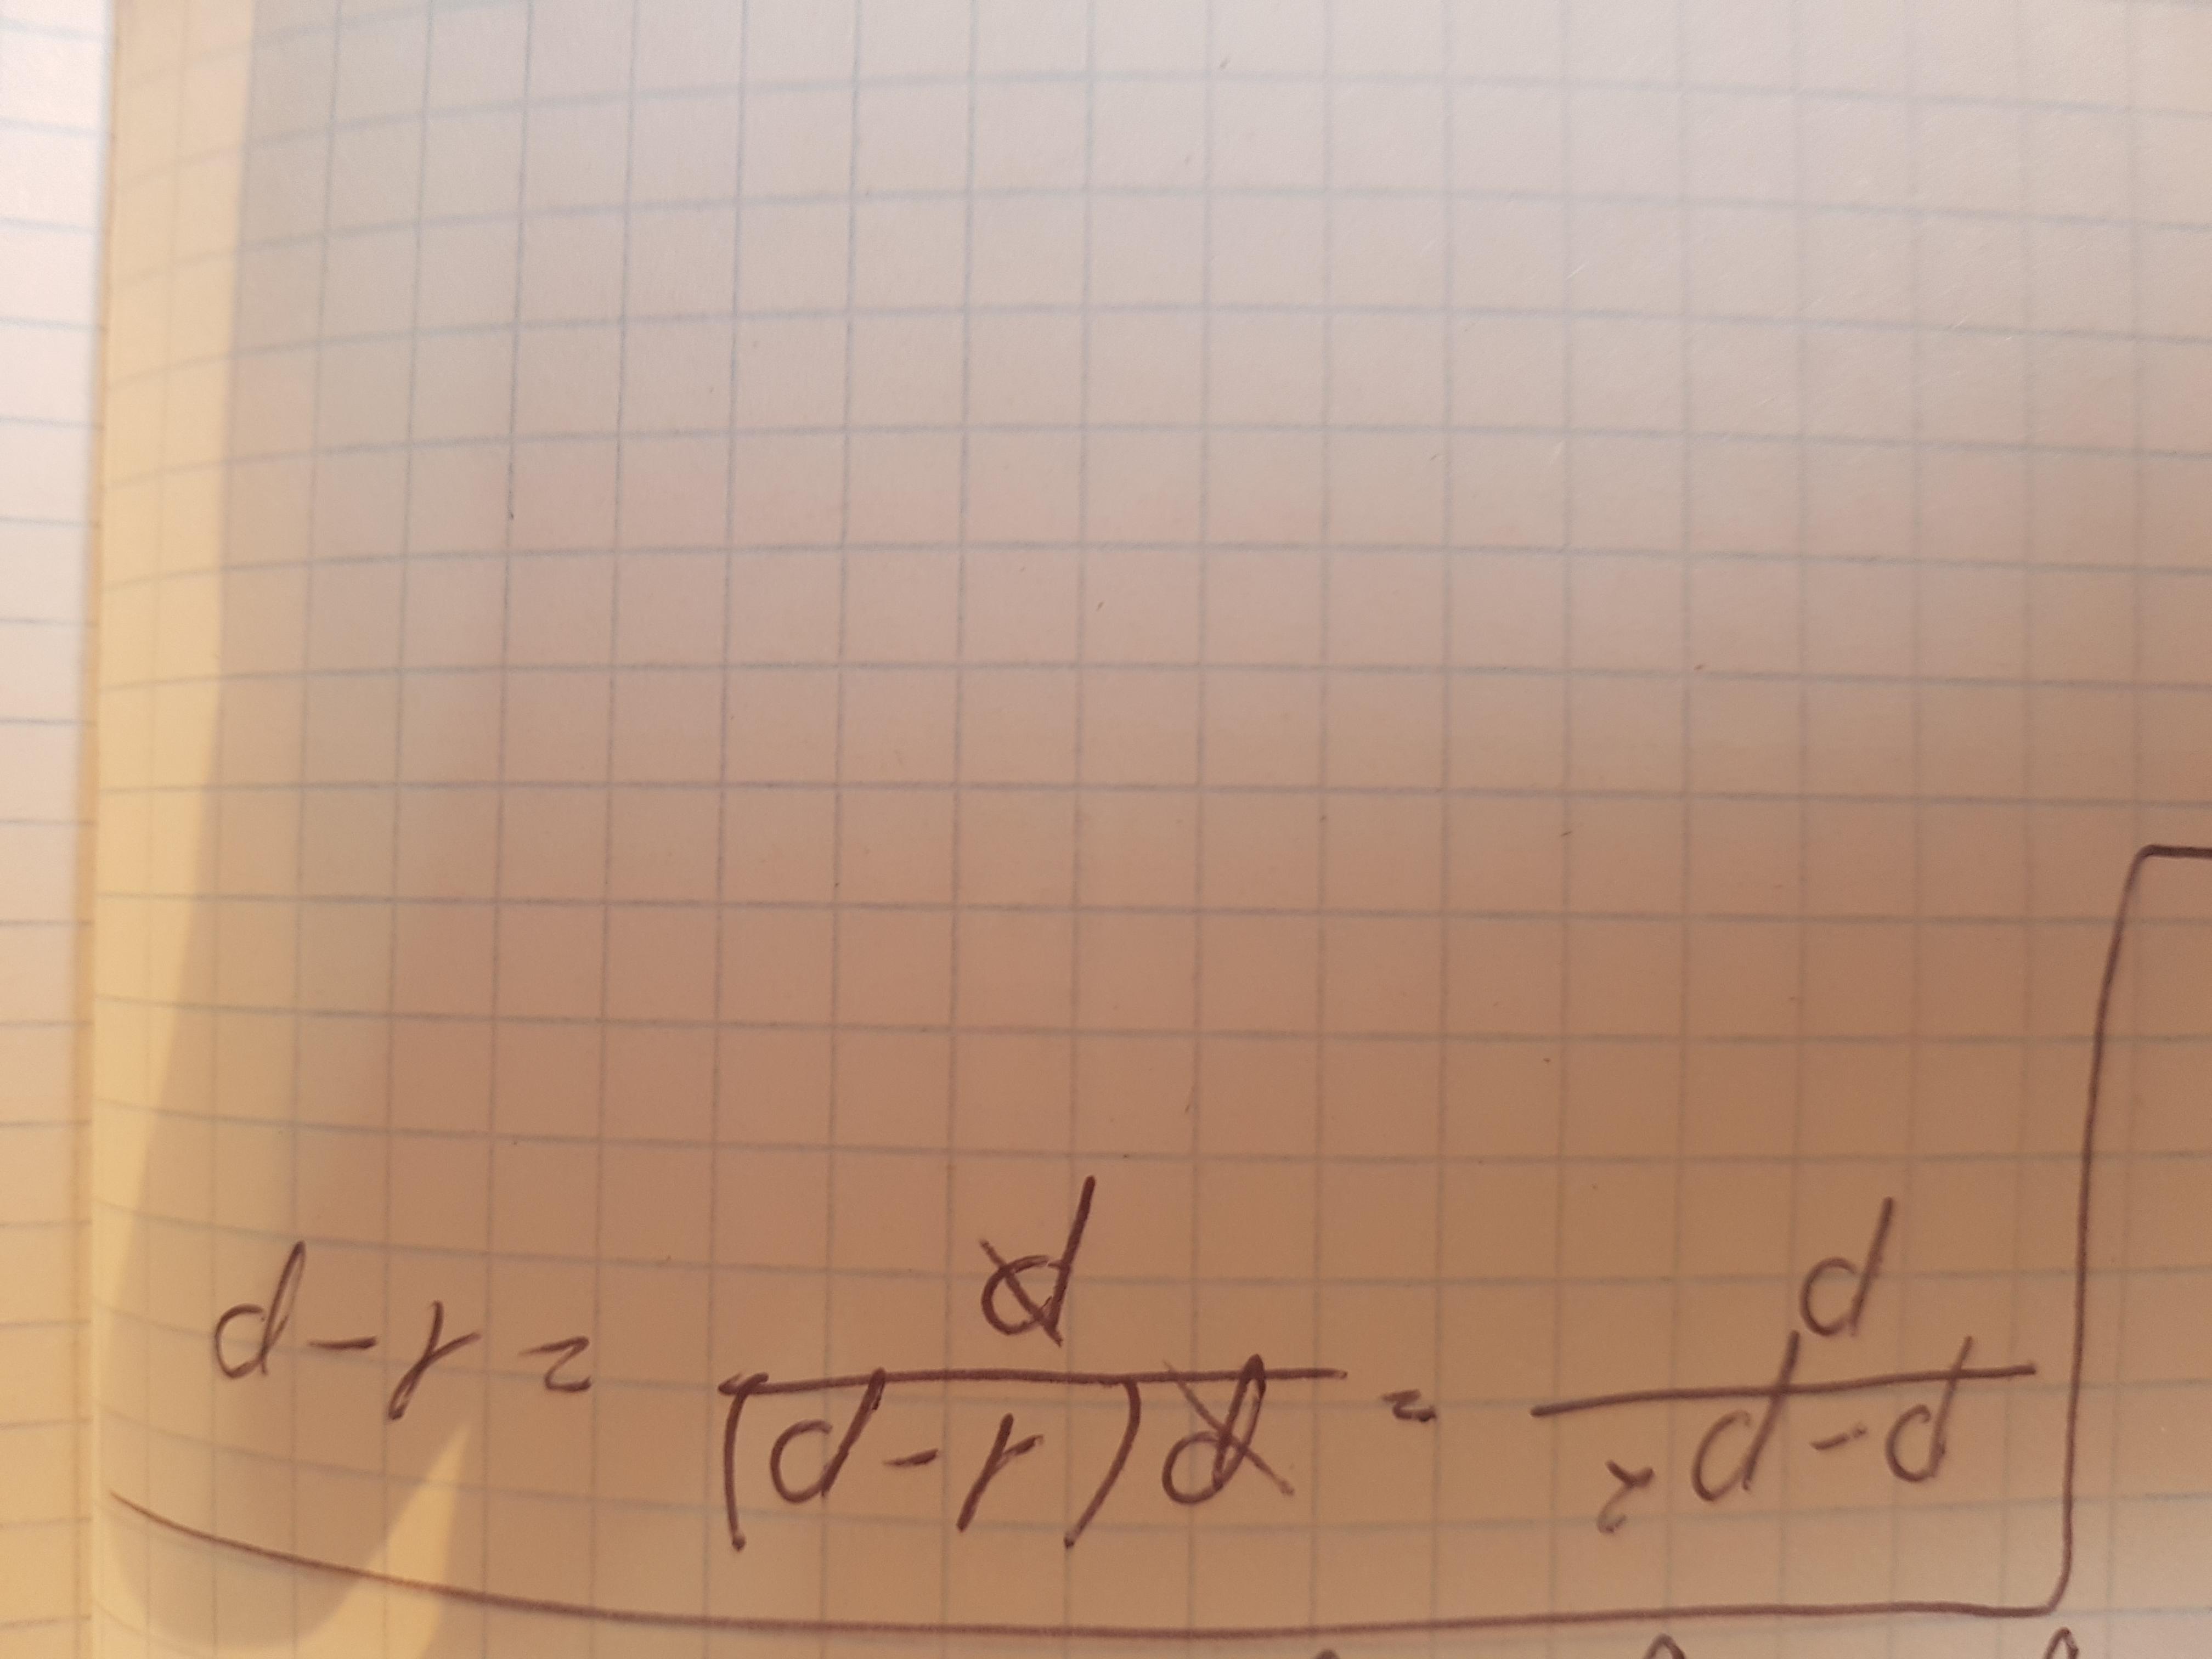 \frac{p-p^2}{p} = \frac{p(1-p)}{p} = 1-p